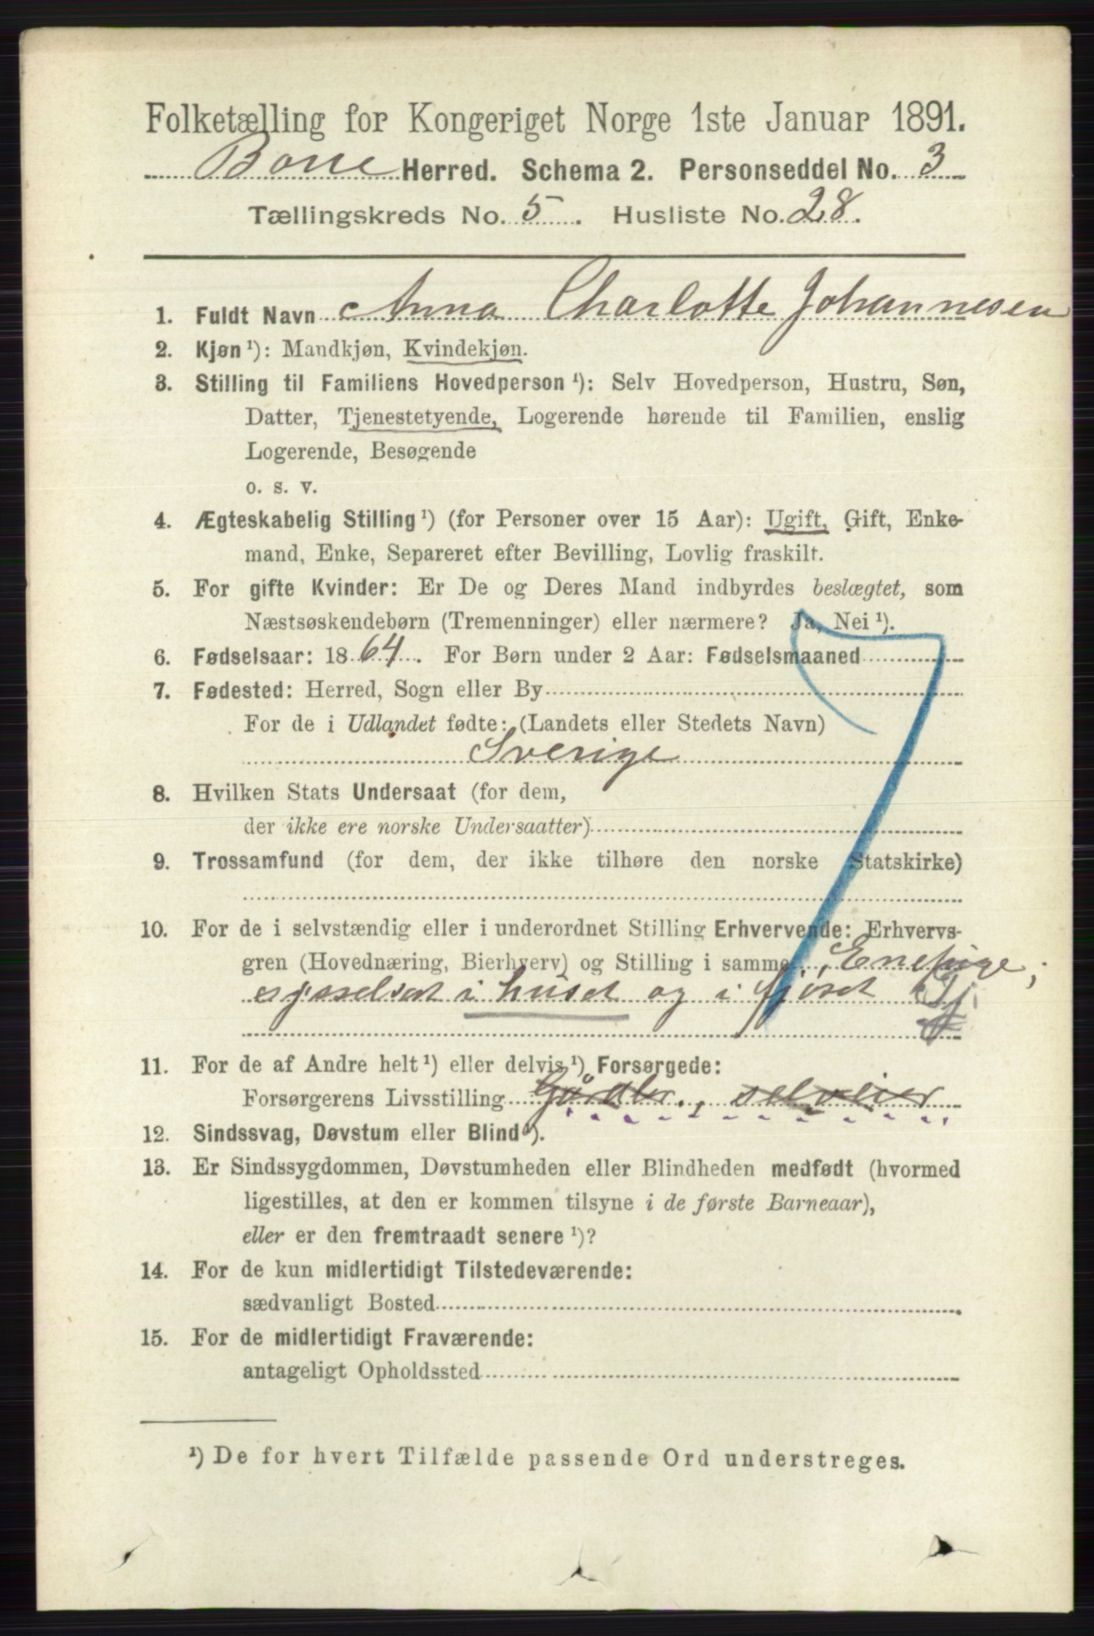 Folketælling for Kongeriget Norge 1ste Januar 1891.
Borre Herred. Schema 2. Personseddel No. 3
Tællingskreds No. 5. Husliste No. 28.
1. Fuldt Navn Anna Charlotte Johannesen
2. Kjøn ¹): Mandkjøn, Kvindekjøn.
3. Stilling til Familiens Hovedperson ¹): Selv Hovedperson, Hustru, Søn,
Datter, Tjenestetyende, Logerende hørende til Familien, enslig
Logerende, Besøgende
o. s. v.
4. Ægteskabelig Stilling ¹) (for Personer over 15 Aar): Ugift, Gift, Enke-
mand, Enke, Separeret efter Bevilling, Lovlig fraskilt.
5. For gifte Kvinder: Er De og Deres Mand indbyrdes beslægtet, som
Næstsøskendebørn (Tremenninger) eller nærmere? Ja, Nei ¹).
6. Fødselsaar: 1864. For Børn under 2 Aar: Fødselsmaaned
7. Fødested: Herred, Sogn eller By
For de i Udlandet fødte: (Landets eller Stedets Navn)
Sverige
8. Hvilken Stats Undersaat (for dem,
der ikke ere norske Undersaatter)
9. Trossamfund (for dem, der ikke tilhøre den norske Statskirke)
10. For de i selvstændig eller i underordnet Stilling Erhvervende: Erhvervs-
gren (Hovednæring, Bierhverv) og Stilling i samme Enepige;
sysselsat i huset og i fjøset Tj
11. For de af Andre helt ¹) eller delvis ¹) Forsørgede:
Forsørgerens Livsstilling Gårdbr., selveier
12. Sindssvag, Døvstum eller Blind ¹).
13. Er Sindssygdommen, Døvstumheden eller Blindheden medfødt (hvormed
ligestilles, at den er kommen tilsyne i de første Barneaar),
eller er den fremtraadt senere ¹)?
14. For de kun midlertidigt Tilstedeværende:
sædvanligt Bosted
15. For de midlertidigt Fraværende:
antageligt Opholdssted
¹) De for hvert Tilfælde passende Ord understreges.